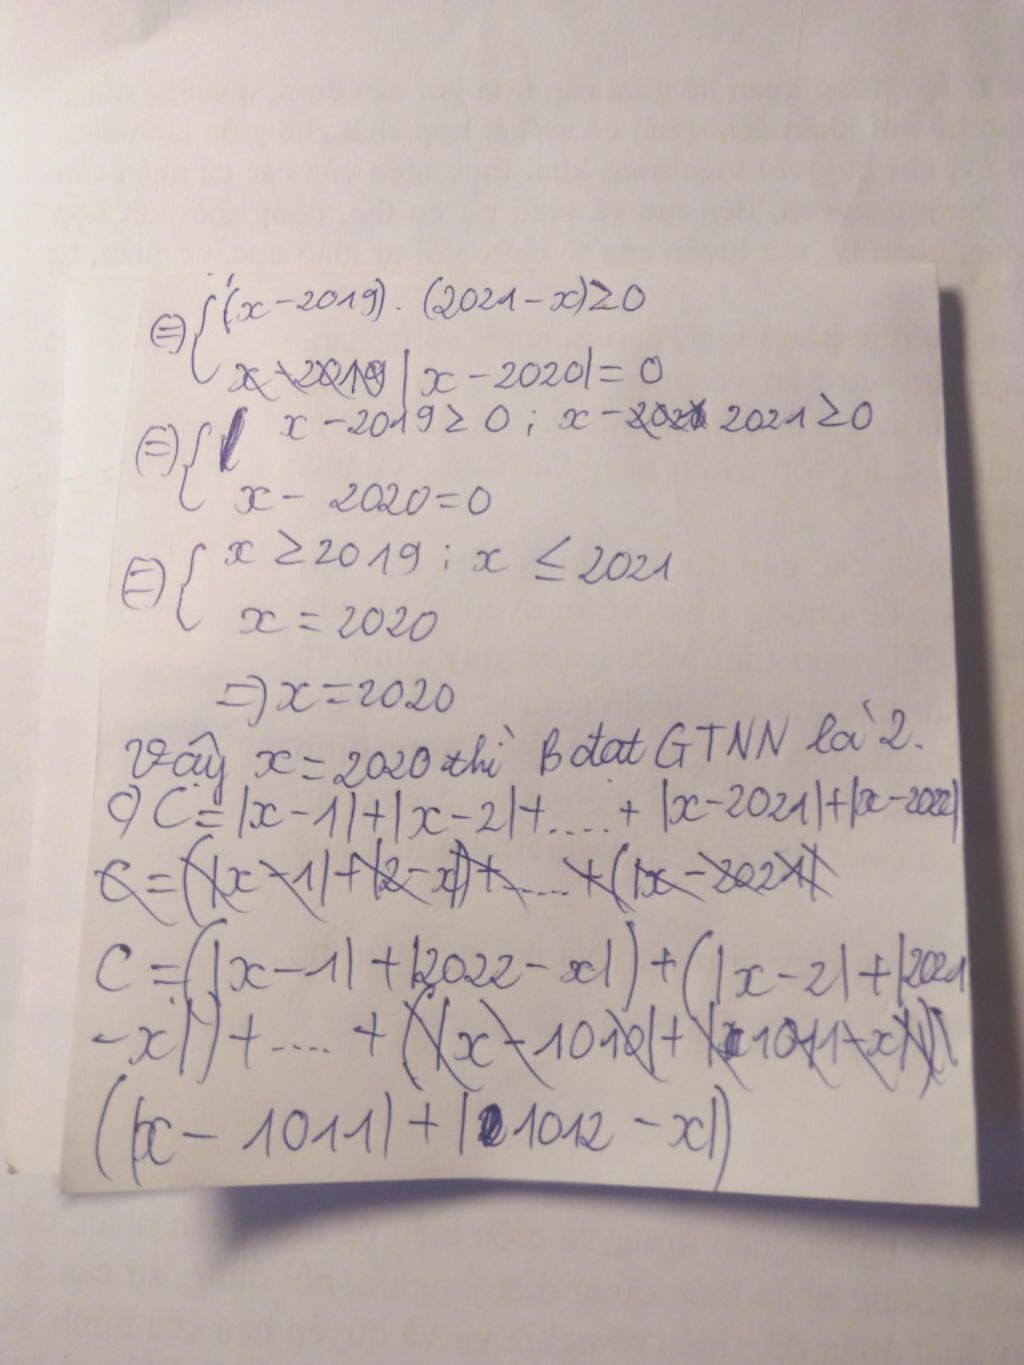 ⇔ { (x - 2019) . (2021 - x) ≥ 0
x - 2019 |x - 2020| = 0
⇔ { x - 2019 ≥ 0 ; x - 2021 ≥ 0
x - 2020 = 0
⇔ { x ≥ 2019 ; x ≤ 2021
x = 2020
⇒ x = 2020
Vậy x = 2020 thì B đạt GTNN là 2.
c) C = |x - 1| + |x - 2| + .... + |x - 2021| + |x - 2022|
C = (|x - 1| + |2 - x|) + .... + (|x - 2021|)
C = (|x - 1| + |2022 - x|) + (|x - 2| + |2021
- x|) + .... + (|x - 1010| + |1011 - x|)
(|x - 1011| + |1012 - x|)